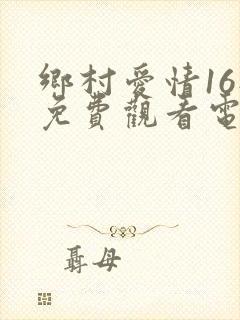 鄉村愛情16
免費觀看電
聶母